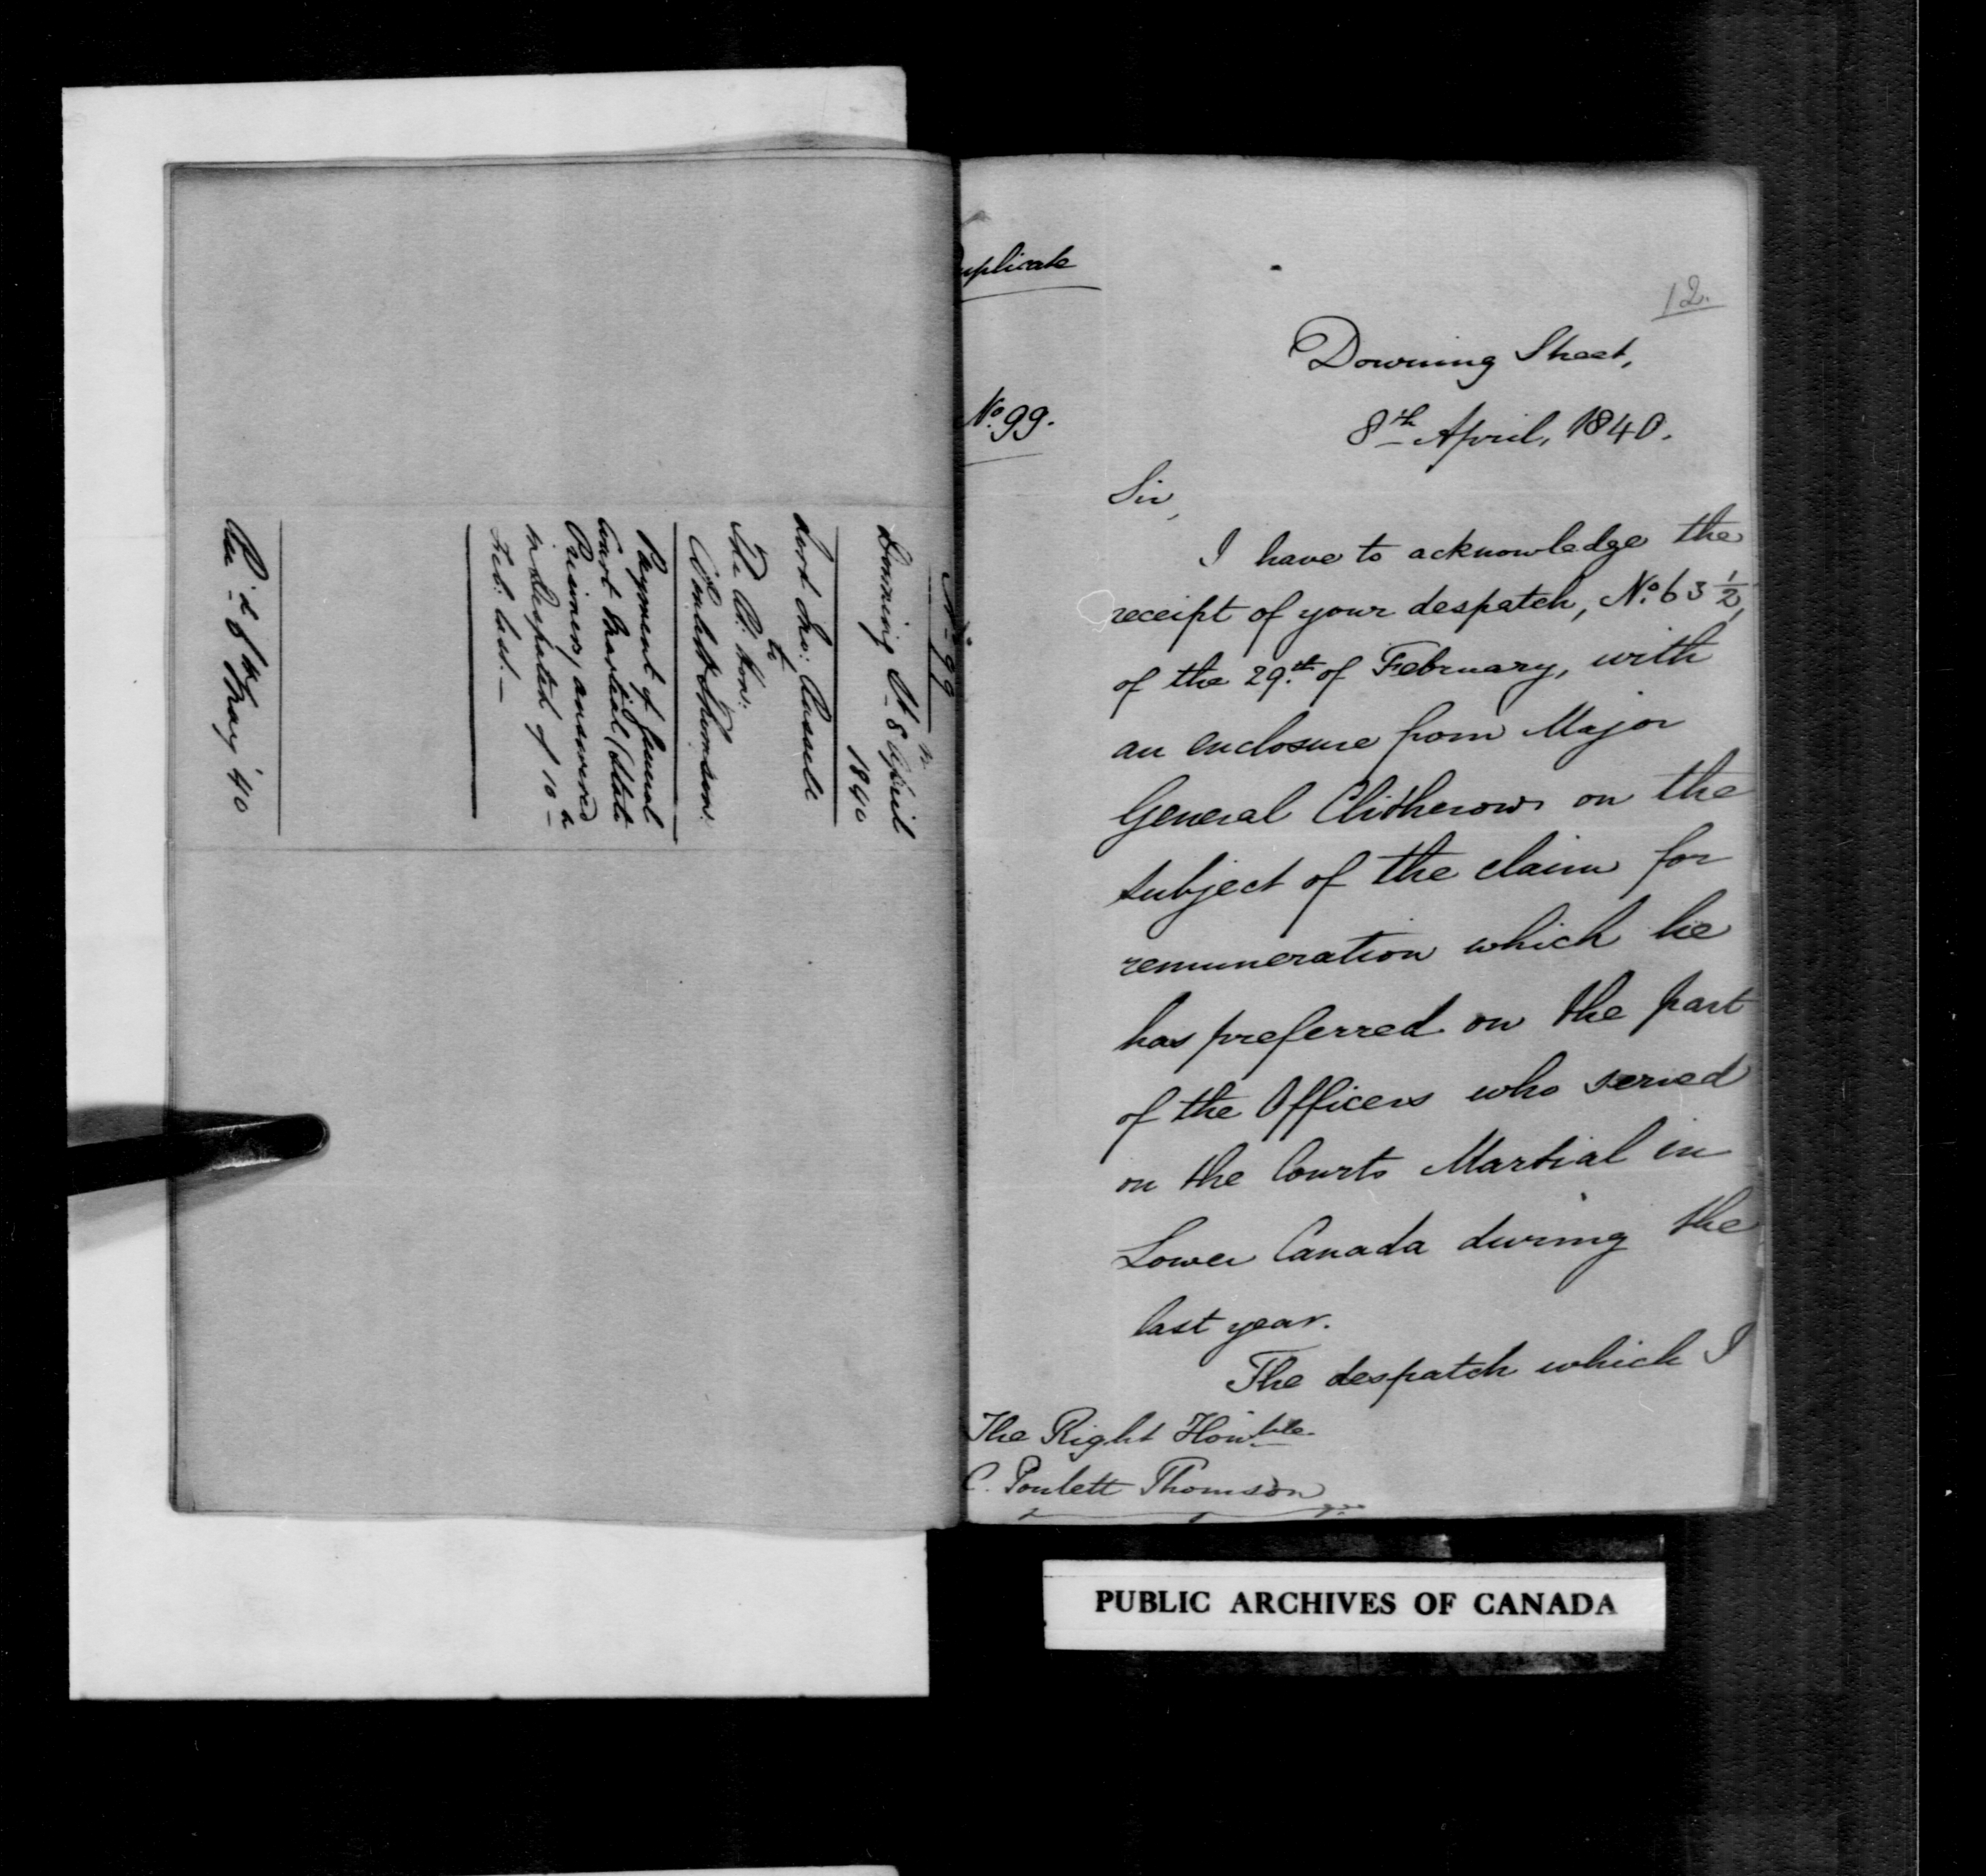 No 99
Downing St 8th April
1840
Lord Jno: Russell
to
The Rt. Hon:
Poulett Thomson.
Payment of General
Court Martial (State
Prisoners) answered
in Despatch of 10th
Feb: last. —
Rec'd 6 May '40
Duplicate
12.
Downing Street,
No. 99.
8th April, 1840.
Sir,
I have to acknowledge the
receipt of your despatch, No. 63 1/2,
of the 29th of February, with
an enclosure from Major
General Clitherow on the
subject of the claim for
remuneration which he
has preferred on the part
of the Officers who served
on the Courts Martial in
Lower Canada during the
last year.
The despatch which I
The Right Honble
C. Poulett Thomson
PUBLIC ARCHIVES OF CANADA